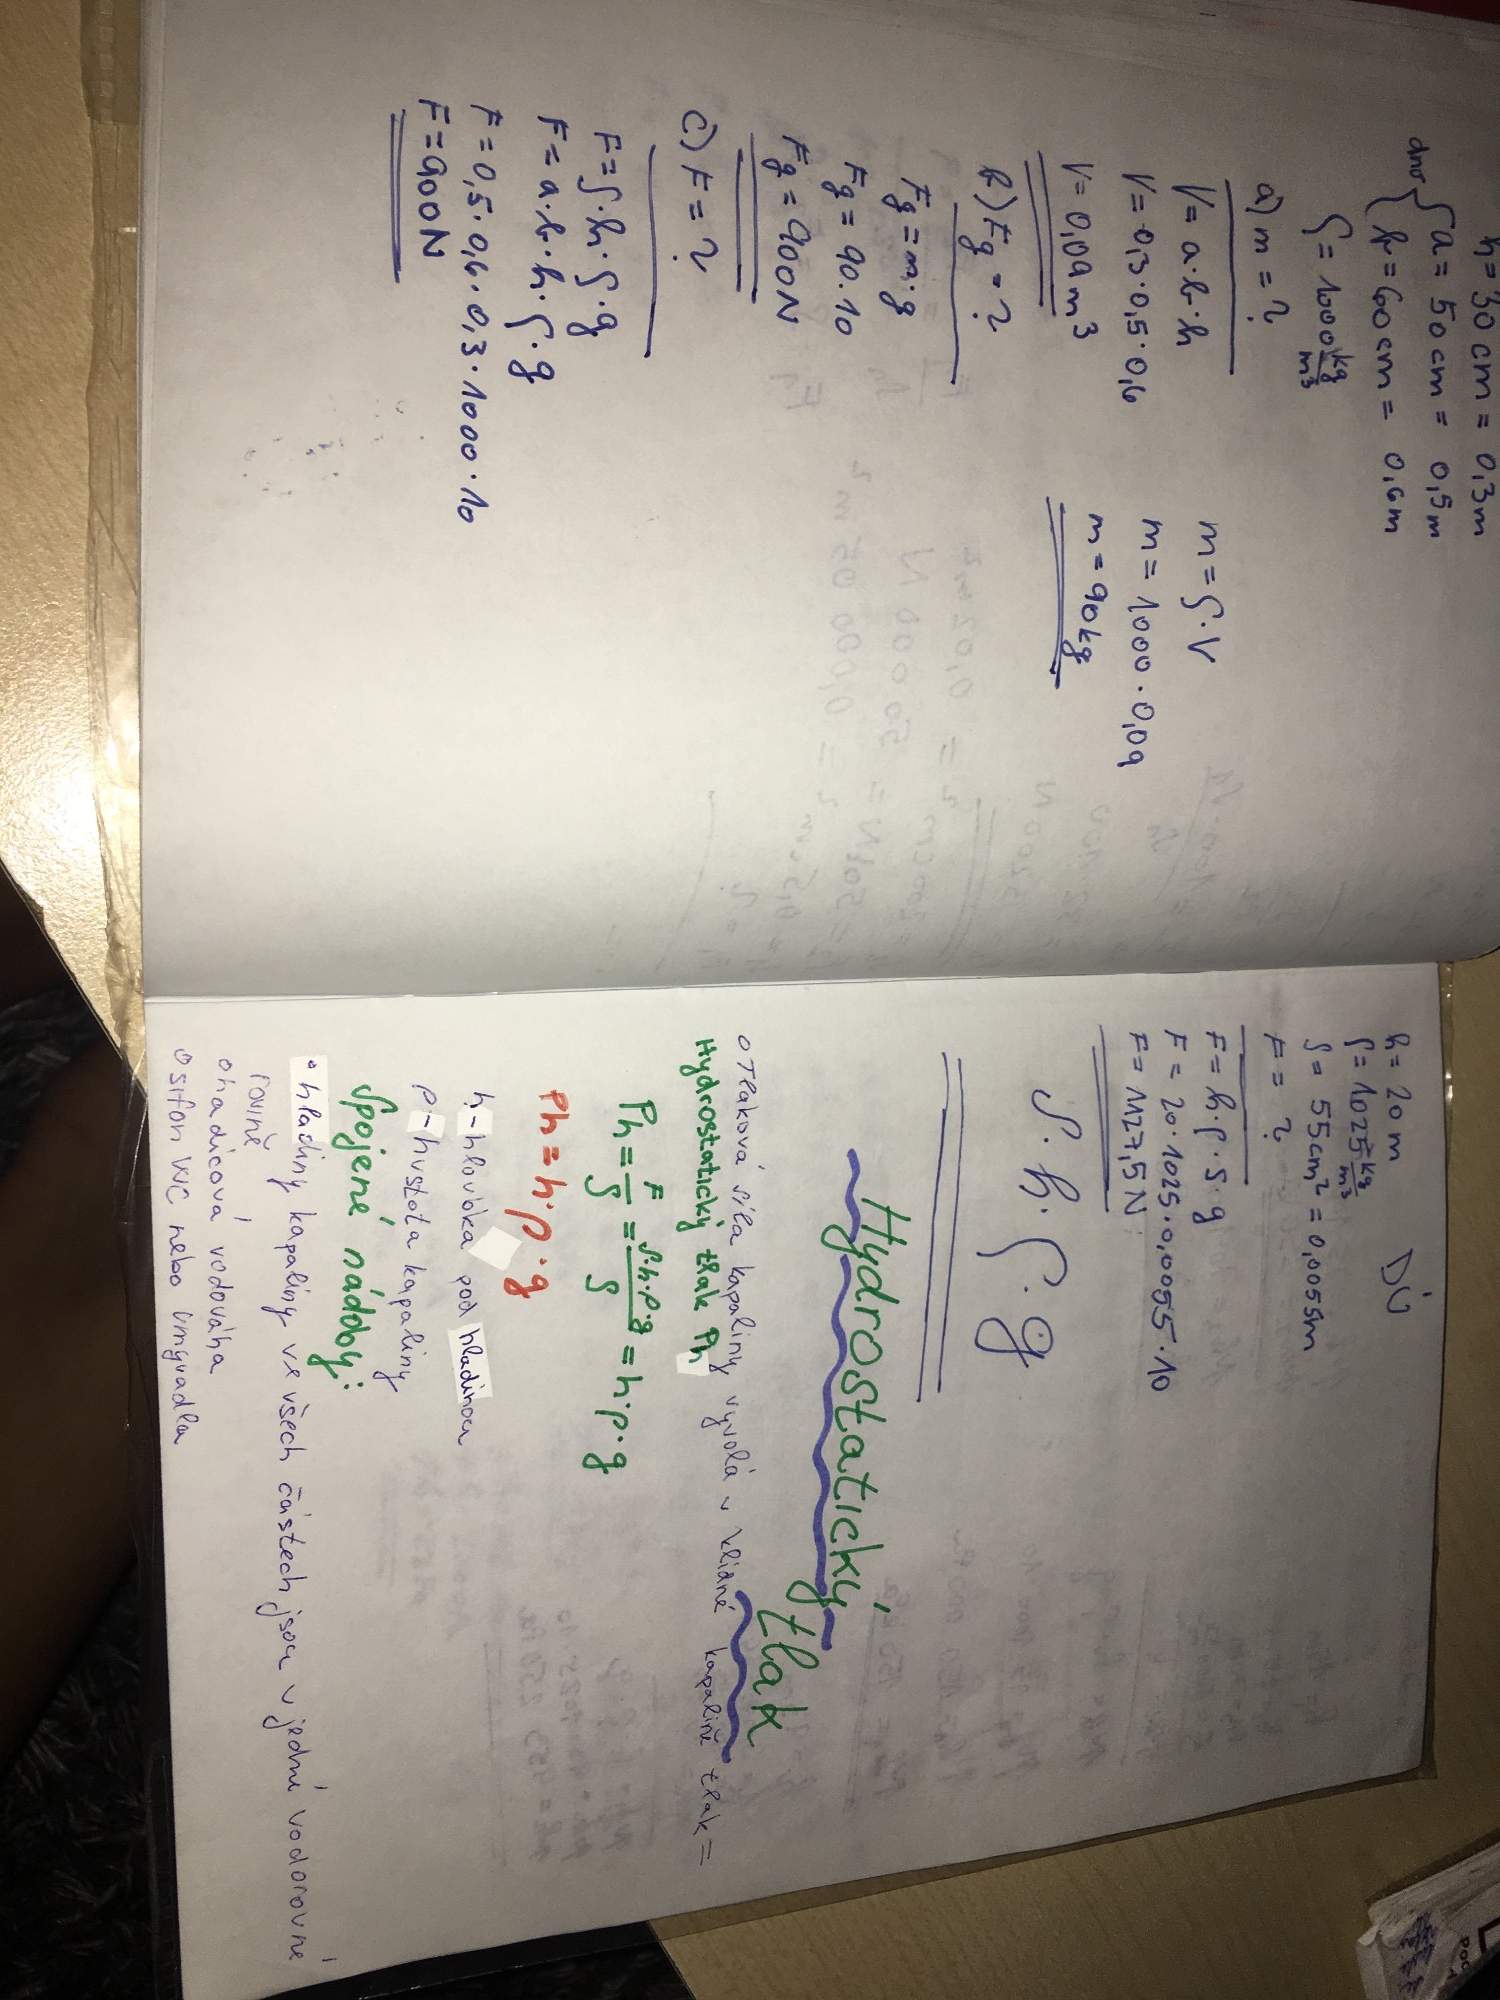 h = 30 cm = 0,3 m
dno { a = 50 cm = 0,5 m
b = 60 cm = 0,6 m
ρ = 1000 kg/m³
a) m = ?
V = a · b · h
V = 0,3 · 0,5 · 0,6
V = 0,09 m³
m = ρ · V
m = 1000 · 0,09
m = 90 kg
b) Fg = ?
Fg = m · g
Fg = 90 · 10
Fg = 900 N
c) F = ?
F = S · h · ρ · g
F = a · b · h · ρ · g
F = 0,5 · 0,6 · 0,3 · 1000 · 10
F = 900 N
h = 20 m DÚ
ρ = 1025 kg/m³
S = 55 cm² = 0,0055 m
F = ?
F = h · ρ · S · g
F = 20 · 1025 · 0,0055 · 10
F = 1127,5 N
S · h · ρ · g
Hydrostatický tlak
○ Tlaková síla kapaliny vyvolá v klidné kapalině tlak =
Hydrostatický tlak Ph
Ph = F/S = S·h·ρ·g/S = h·ρ·g
Ph = h·ρ·g
h - hloubka pod hladinou
ρ - hustota kapaliny
Spojené nádoby:
• hladiny kapaliny ve všech částech jsou v jedné vodorovné
rovině
○ hadicová vodováha
○ sifon WC nebo umyvadla